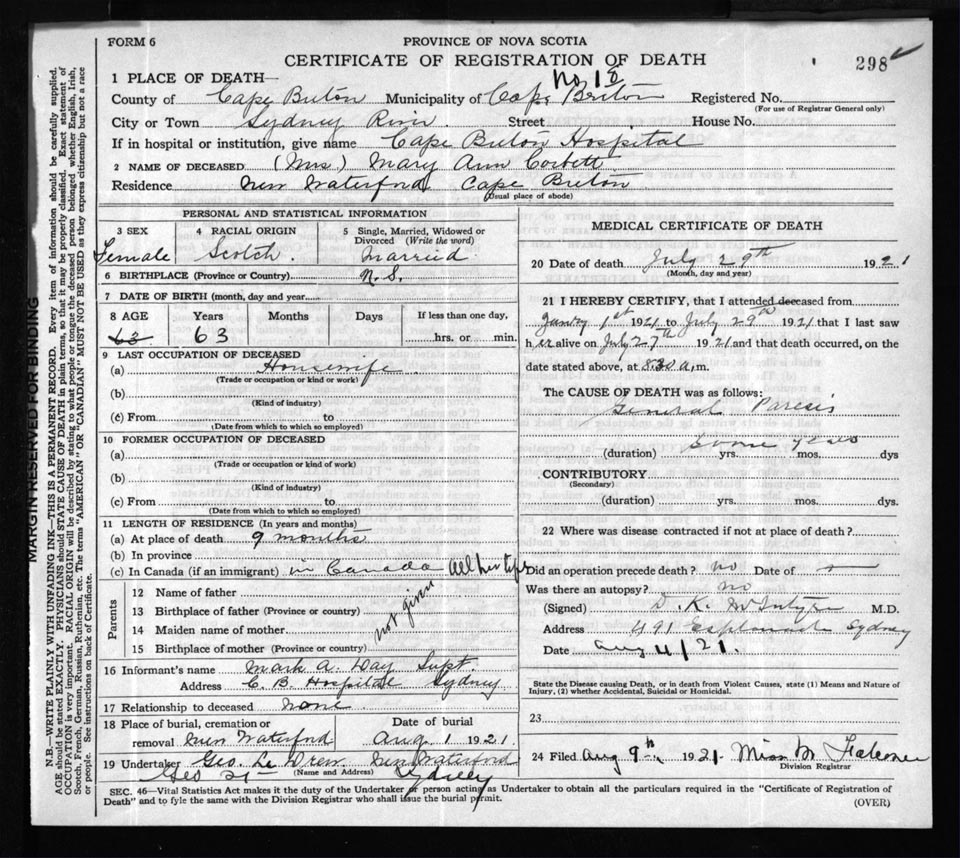 FORM 6
PROVINCE OF NOVA SCOTIA
CERTIFICATE OF REGISTRATION OF DEATH
298
1 PLACE OF DEATH—
No. 18
County of Cape Breton Municipality of Cape Breton Registered No.
(For use of Registrar General only)
City or Town Sydney River Street House No.
If in hospital or institution, give name Cape Breton Hospital
2 NAME OF DECEASED (Mrs) Mary Ann Corbett
Residence New Waterford Cape Breton
(Usual place of abode)
PERSONAL AND STATISTICAL INFORMATION
3 SEX
Female
4 RACIAL ORIGIN
Scotch.
5 Single, Married, Widowed or Divorced (Write the word)
Married
6 BIRTHPLACE (Province or Country) N.S.
7 DATE OF BIRTH (month, day and year)
8 AGE Years Months Days If less than one day,
63 63 hrs. or min.
9 LAST OCCUPATION OF DECEASED
(a) Housewife
(Trade or occupation or kind or work)
(b)
(Kind of industry)
(c) From to
(Date from which to which so employed)
10 FORMER OCCUPATION OF DECEASED
(a)
(Trade or occupation or kind of work)
(b)
(Kind of industry)
(c) From to
(Date from which to which so employed)
11 LENGTH OF RESIDENCE (In years and months)
(a) At place of death 9 months
(b) In province
(c) In Canada (if an immigrant) in Canada all her life
Parents
12 Name of father
13 Birthplace of father (Province or country)
14 Maiden name of mother
15 Birthplace of mother (Province or country)
not given
16 Informant's name Mark A. Day Supt.
Address C. B. Hospital Sydney
17 Relationship to deceased none
18 Place of burial, cremation or removal New Waterford
Date of burial Aug. 1 1921.
19 Undertaker Geo. New Waterford
(Name and Address)
Geo St Sydney
MEDICAL CERTIFICATE OF DEATH
20 Date of death July 29th 1921
(Month, day and year)
21 I HEREBY CERTIFY, that I attended deceased from
1st 1921 to July 29th 1921 that I last saw
her alive on July 27th 1921 and that death occurred, on
date stated above, at 8.30 a.m.
The CAUSE OF DEATH was as follows:
General Paresis
(duration) Some years yrs. mos. dys
CONTRIBUTORY
(Secondary)
(duration) yrs. mos. dys.
22 Where was disease contracted if not at place of death?
Did an operation precede death? no Date of —
Was there an autopsy? no
(Signed) D. K. McIntyre M.D.
Address 491 Esplanade Sydney
Date Aug 4/21.
State the Disease causing Death, or in death from Violent Causes, state (1) Means and Nature of Injury, (2) whether Accidental, Suicidal or Homicidal.
23
24 Filed Aug 9th, 1921. Miss M Falconer
Division Registrar
SEC. 46—Vital Statistics Act makes it the duty of the Undertaker or person acting as Undertaker to obtain all the particulars required in the "Certificate of Registration of
Death" and to fyle the same with the Division Registrar who shall issue the burial permit.
(OVER)
MARGIN RESERVED FOR BINDING
N.B.—WRITE PLAINLY WITH UNFADING INK—THIS IS A PERMANENT RECORD. Every item of information should be carefully supplied.
AGE should be stated EXACTLY. PHYSICIANS should STATE CAUSE OF DEATH in plain terms, so that it may be properly classified. Exact statement of
OCCUPATION is very important. RACIAL ORIGIN will be described by stating to what people or tongue the deceased person belonged whether English, Irish,
Scotch, French, German, Russian, Ruthenian, etc. The terms "AMERICAN" OR "CANADIAN" MUST NOT BE USED as they express citizenship but not a race
or people. See instructions on back of Certificate.